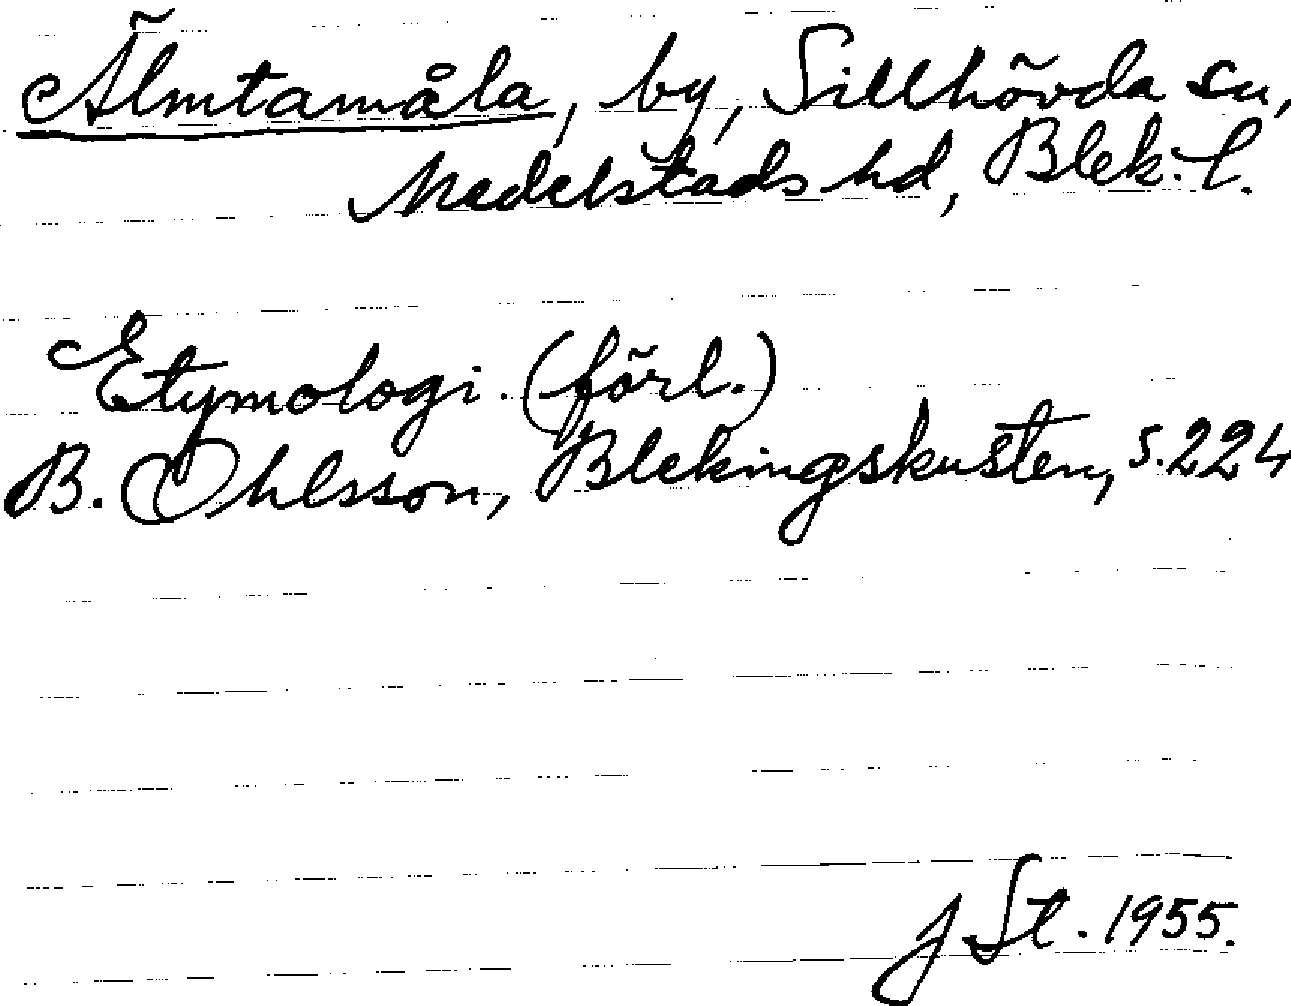 Älmtamåla, by, Sillhövda sn,
Medelstads hd, Blek. l.
Etymologi. (förl.)
B. Ohlsson, Blekingskusten, s. 224
J St. 1955.